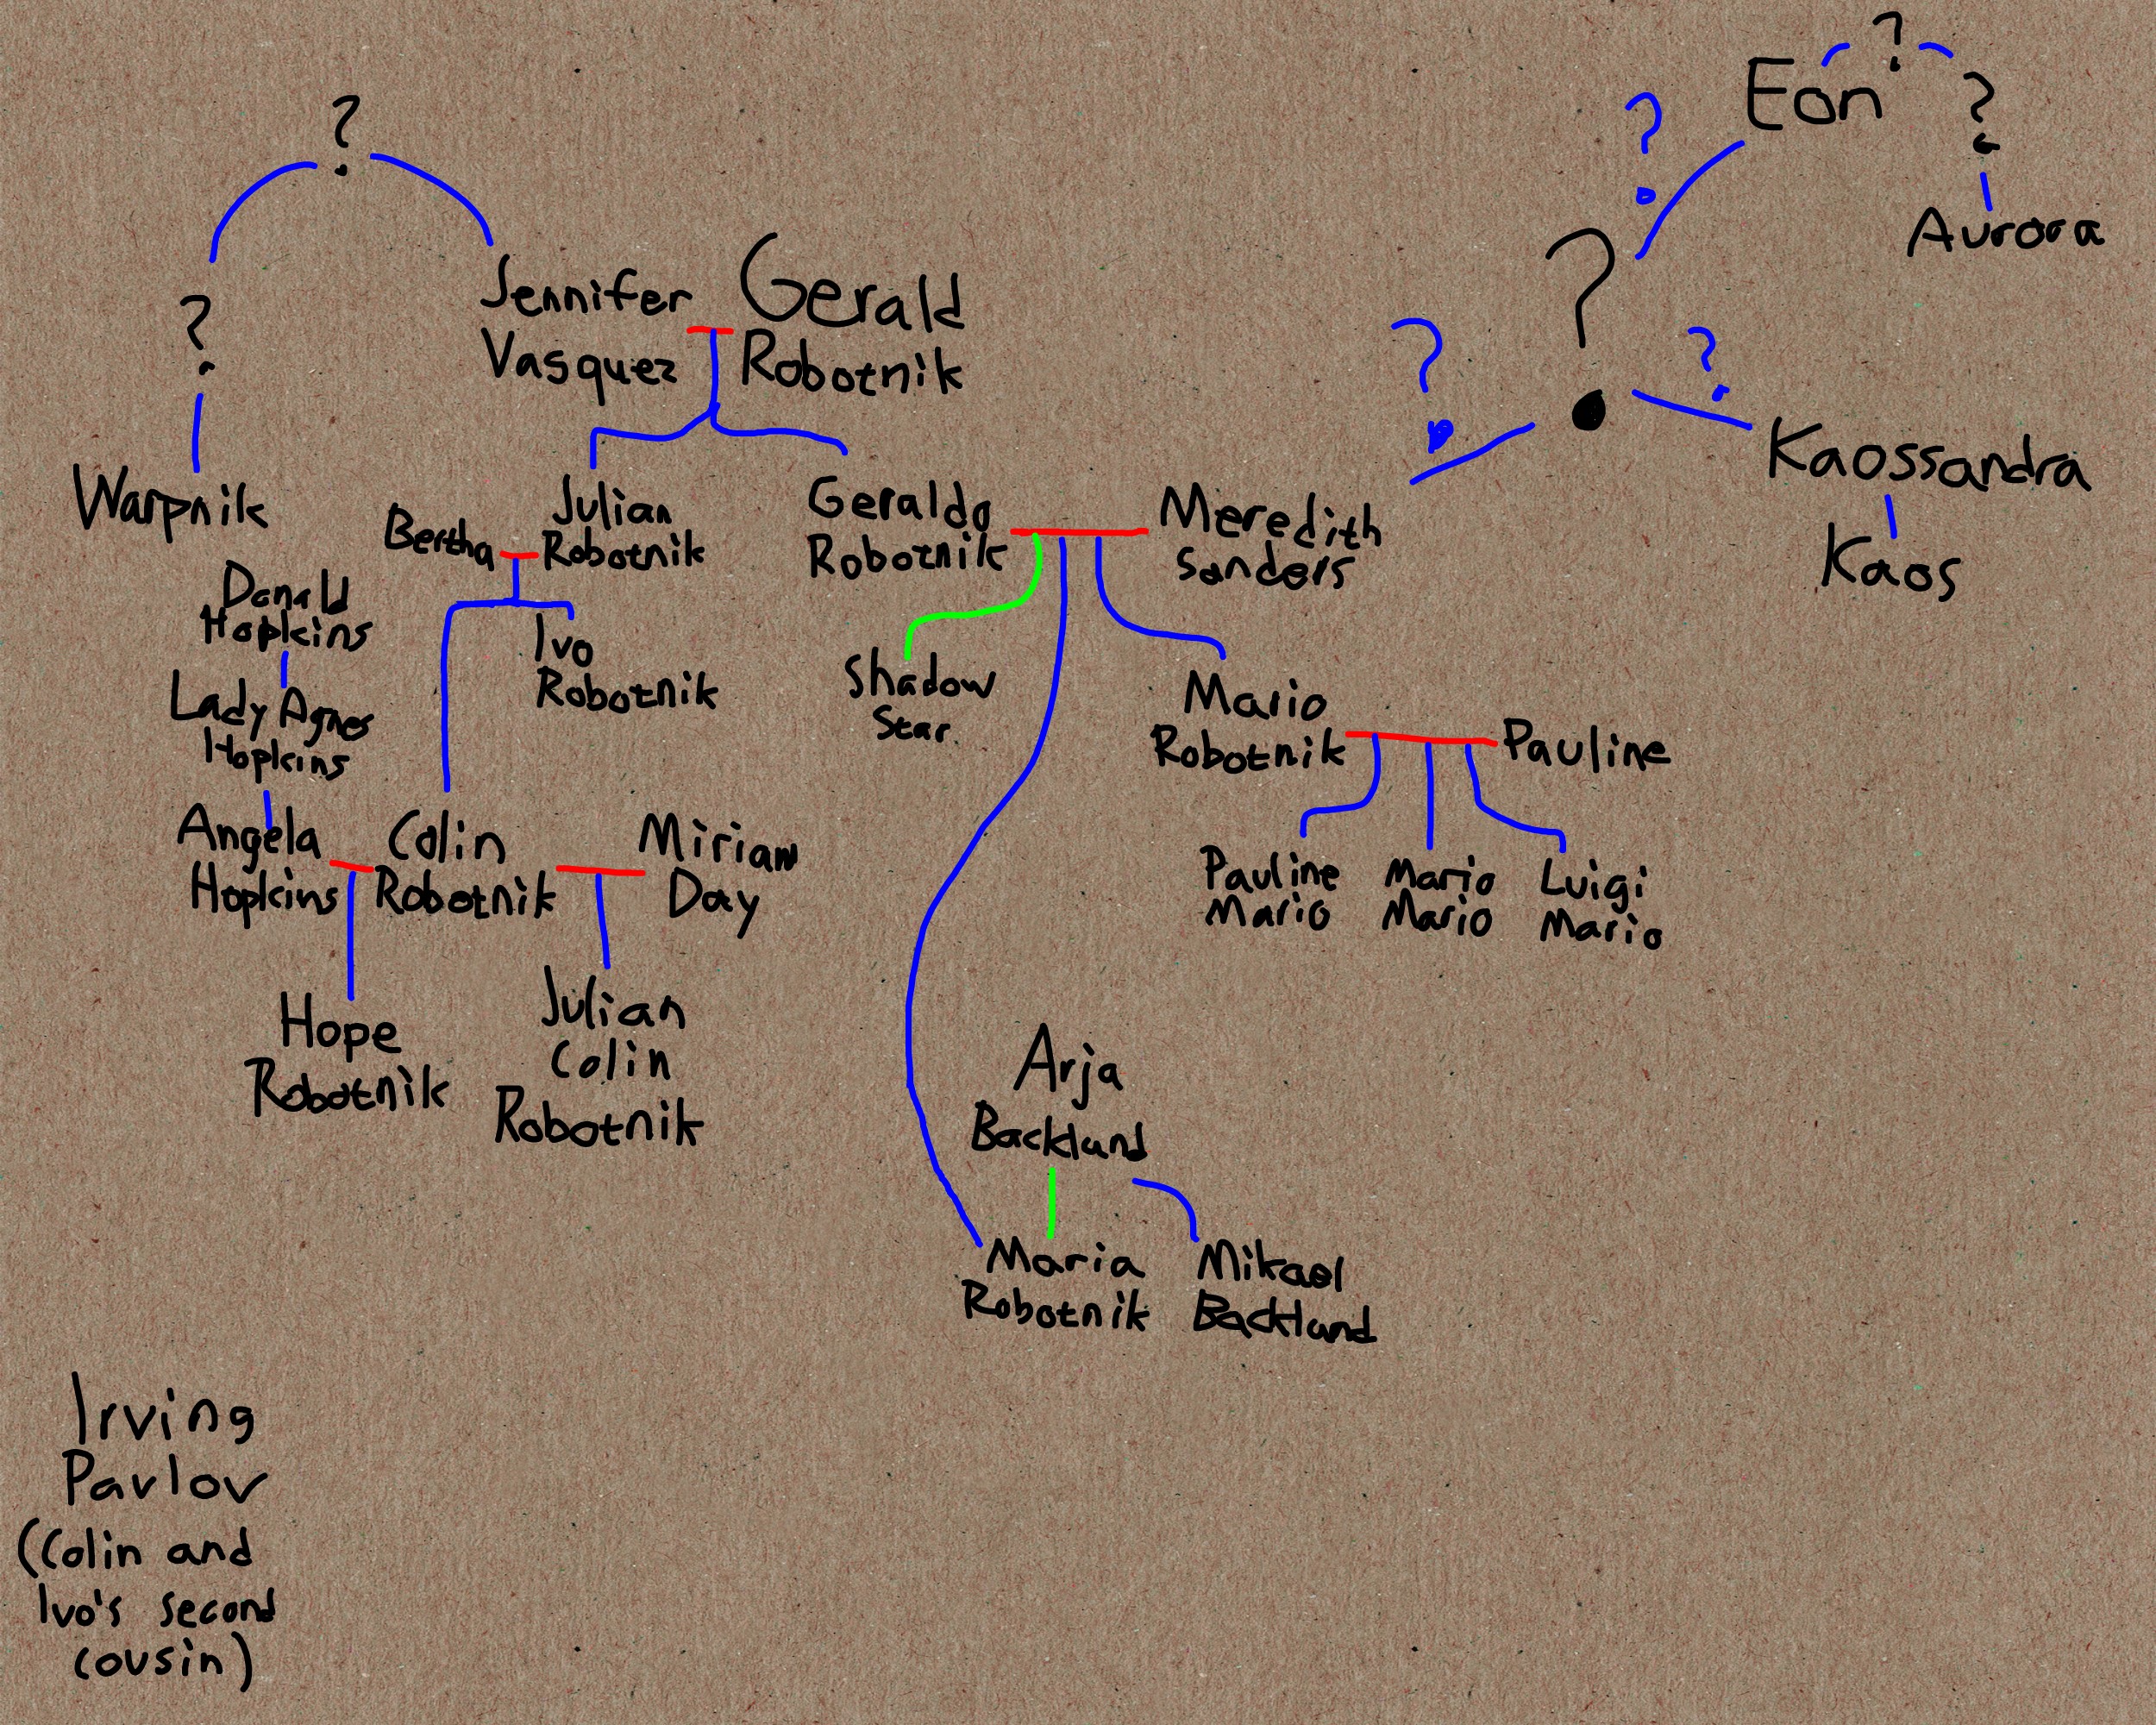 ?
Eon
?
?
Aurora
?
?
?
Jennifer
Vasquez
Gerald
Robotnik
?
?
?
Kaossandra
Kaos
Warpnik
Bertha
Julian
Robotnik
Geraldo
Robotnik
Meredith
Sanders
Donald
Hopkins
Lady Agnes
Hopkins
Ivo
Robotnik
Shadow
Star
Mario
Robotnik
Pauline
Angela
Hopkins
Colin
Robotnik
Miriam
Day
Pauline
Mario
Mario
Mario
Luigi
Mario
Hope
Robotnik
Julian
Colin
Robotnik
Arja
Backlund
Maria
Robotnik
Mikael
Backlund
Irving
Pavlov
(Colin and
Ivo's second
cousin)